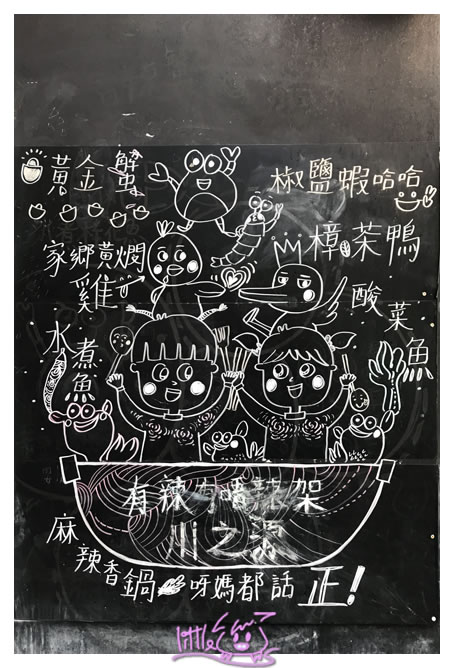 黃金蟹
椒鹽蝦哈哈
樟茶鴨
家鄉黃燜
雞
酸菜魚
水煮魚
有辣有唔辣架
川之
麻辣香鍋
呀媽都話正!
little